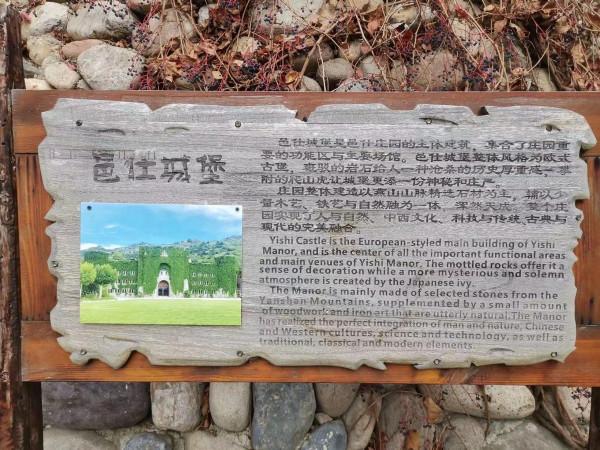 邑仕城堡
邑仕城堡是邑仕庄园的主体建筑，集合了庄园重
要的功能区与主要场馆。邑仕城堡整体风格为欧式
古堡，斑驳的岩石给人一种沧桑的历史厚重感，攀
附的爬山虎让城堡更添一份神秘和庄严。
庄园整体建造以燕山山脉精选石材为主，辅以少
量木艺、铁艺与自然融为一体，浑然天成。整个庄
园实现了人与自然、中西文化、科技与传统、古典与
现代的完美融合。
Yishi Castle is the European-styled main building of Yishi
Manor, and is the center of all the important functional areas
and main venues of Yishi Manor. The mottled rocks offer it a
sense of decoration while a more mysterious and solemn
atmosphere is created by the Japanese ivy.
The Manor is mainly made of selected stones from the
Yanshan Mountains, supplemented by a small amount
of woodwork and iron art that are utterly natural. The Manor
has realized the perfect integration of man and nature, Chinese
and Western cultures, science and technology, as well as
traditional, classical and modern elements.